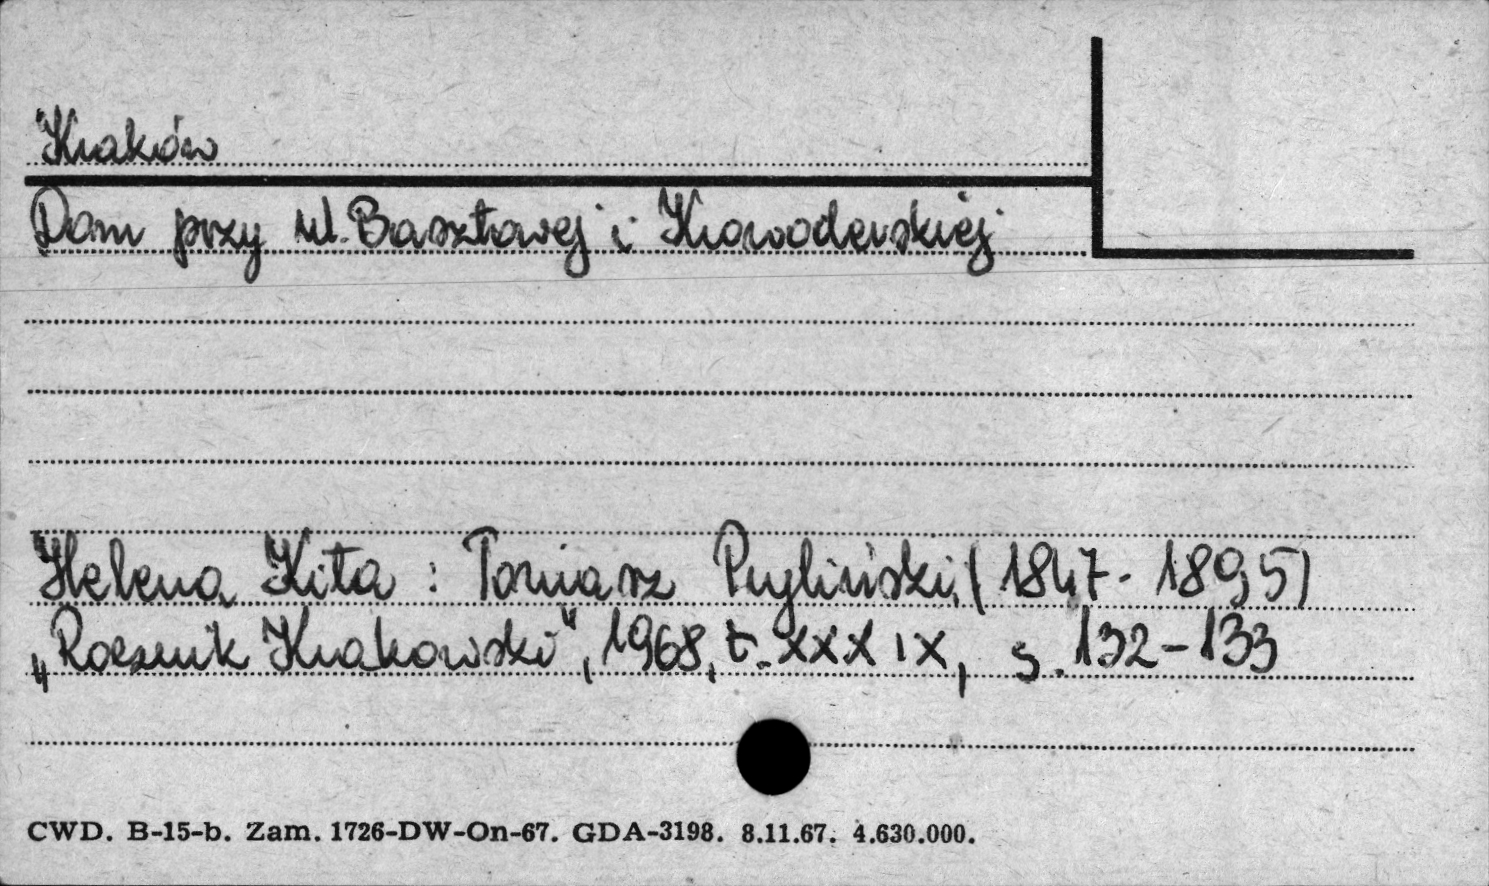 Kraków
Dom przy ul. Basztowej i Krowoderskiej
Helena Kita : Tomasz Pryliński, (1847-1895)
„Rocznik Krakowski", 1968, t. XXXIX, s. 132-133
CWD. B-15-b. Zam. 1726-DW-On-67. GDA-3198. 8.11.67. 4.630.000.